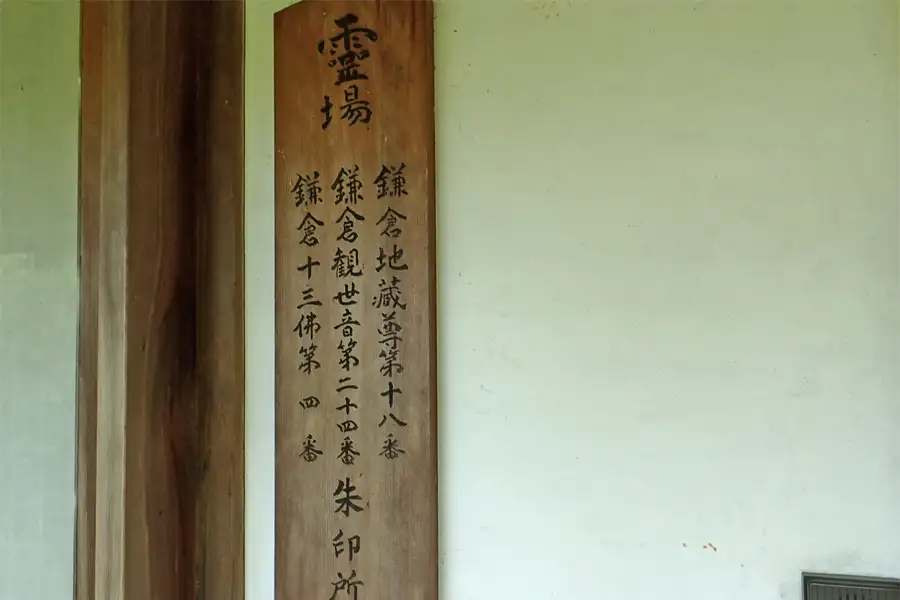 靈場
鎌倉地蔵尊第十八番
鎌倉観世音第二十四番
鎌倉十三佛第四番
朱印所